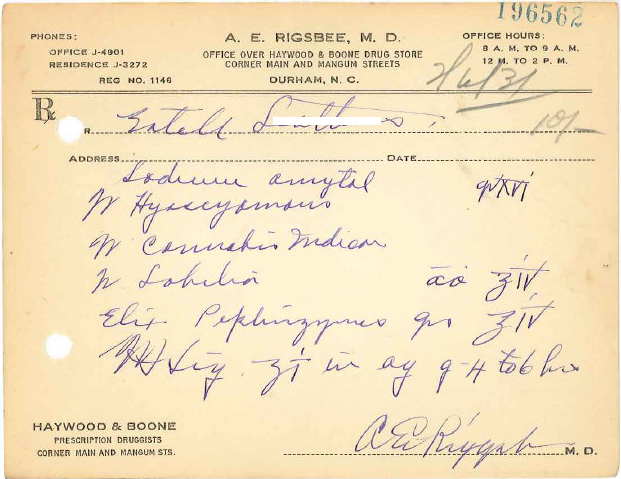 196562
PHONES:
OFFICE J-4901
RESIDENCE J-3272
REG NO. 1146
A. E. RIGSBEE, M. D.
OFFICE OVER HAYWOOD & BOONE DRUG STORE
CORNER MAIN AND MANGUM STREETS
DURHAM, N. C.
OFFICE HOURS:
8 A. M. TO 9 A. M.
12 M. TO 2 P. M.
2/6/31
℞
R
Estell
ADDRESS DATE
Sodium amytal gr XVI
Hyoscyamous
Cannabis Indica
Lobelia āā ʒ IV
Elix Peptenzyme qs ʒ IV
Sig ʒ i in aq q 4 to 6 hrs
HAYWOOD & BOONE
PRESCRIPTION DRUGGISTS
CORNER MAIN AND MANGUM STS.
A E Rigsbee M. D.